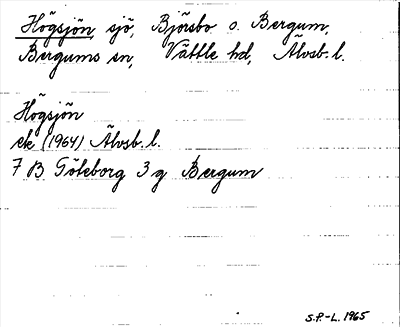 Högsjön sjö, Björsbo o. Bergum,
Bergums sn, Vättle hd, Älvsb. l.
Högsjön
ek (1964) Älvsb. l.
7 B Göteborg 3 g Bergum
S.P.-L. 1965